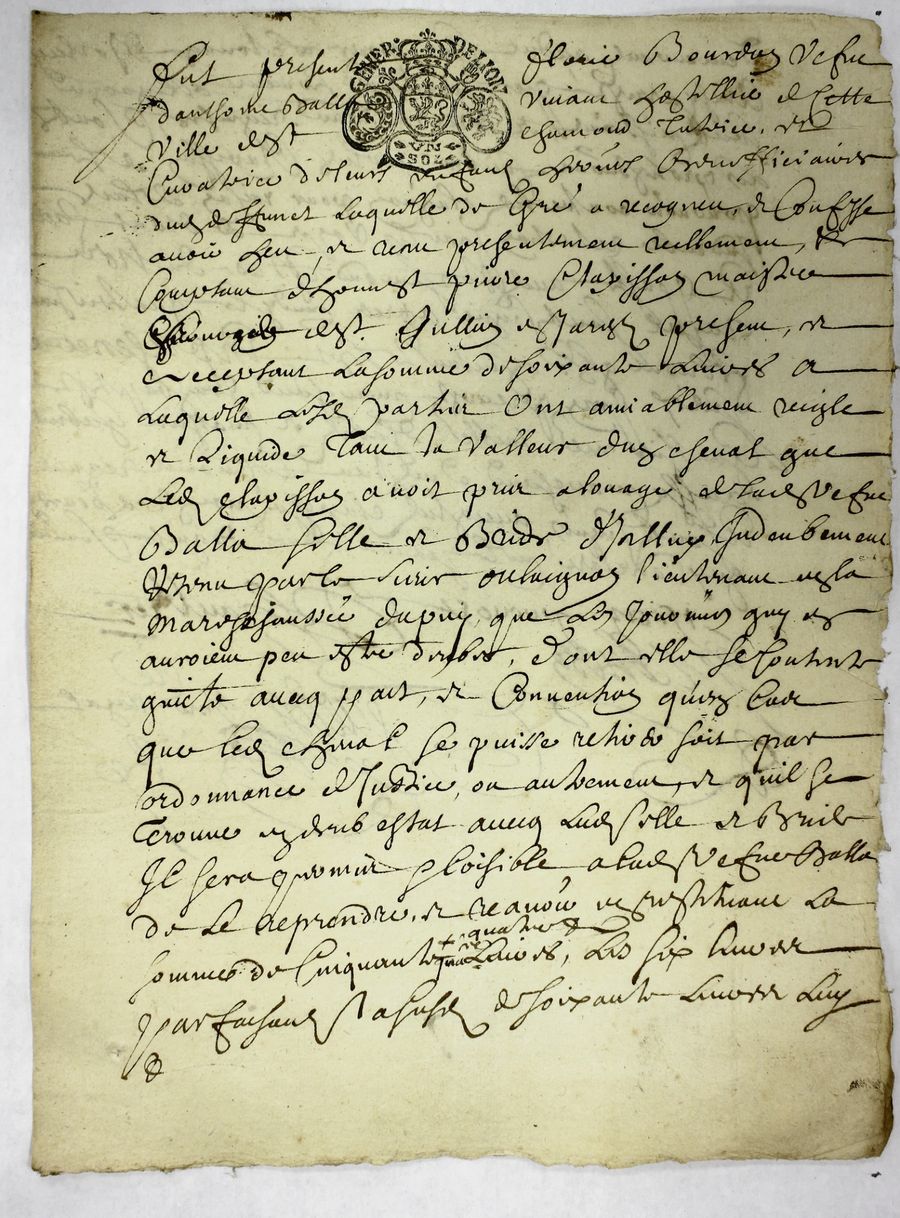 GENER. DE LION
UN SOL
Fut present Florie Bourdon vefue
d'anthoine Balla vivant hostellier de cette
ville de st chamond tutrice, et
Curatrice de leurs enfans heritiers benefficiaires
dud deffunct Laquelle de gré a recogneu, et Confesse
avoir heu, et receu presentement reellement, et
Comptant d'honnest pierre Clapisson maistre
de st Jullien en Jarez present, et
acceptant La somme de soixante Livres a
Laquelle Lesd parties ont amiablement reigle
et Liquide tant la valleur dun cheval que
Led clapisson avoit prins a louage de lad vefue
Balla selle et Bride d'icelluy
retenu par le sieur lieutenant en la
mareschaussée du puy, que Les Journées quy en
auroient peu estre deubes, d'ont elle se contente
quicte avecq pact, et Convention qu'en cas
que led cheval se puisse retirer soit par
ordonnance de Justice, ou autrement, et quil se
treuve en deub estat avecq Lad selle et Bride
Il sera permis ploisible a lad vefue Balla
de Le reprendre, et ravoir en restituant La
quatre
somme de Cinquante Livres, Les six livres
parfaisant La susd de soixante Livres Luy